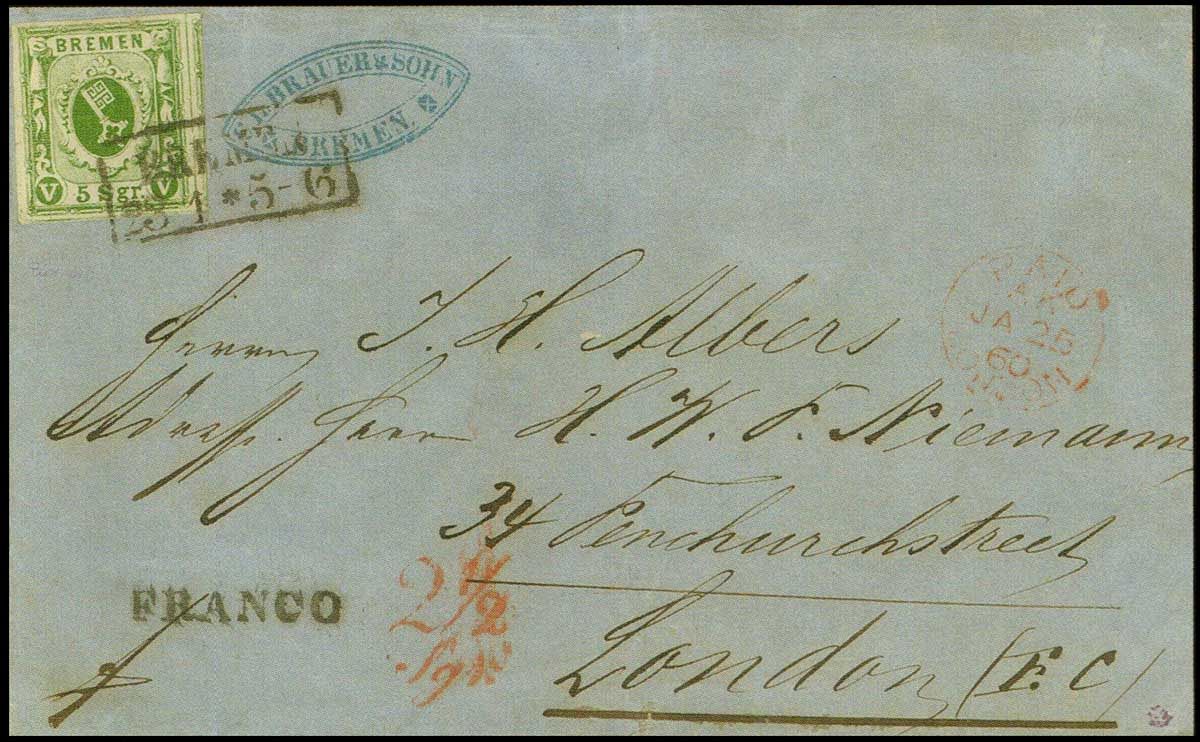 BREMEN
V 5 Sgr. V
BRAUER & SOHN
BREMEN.
BREMEN
23 1 * 5-6
PAID
JA 25
60
LONDON
Herrn J. H. Albers
Adress. Herrn H. W. F. Niemann,
34 Fenchurchstreet
FRANCO
2 1/2
Sgr
London (E.C)